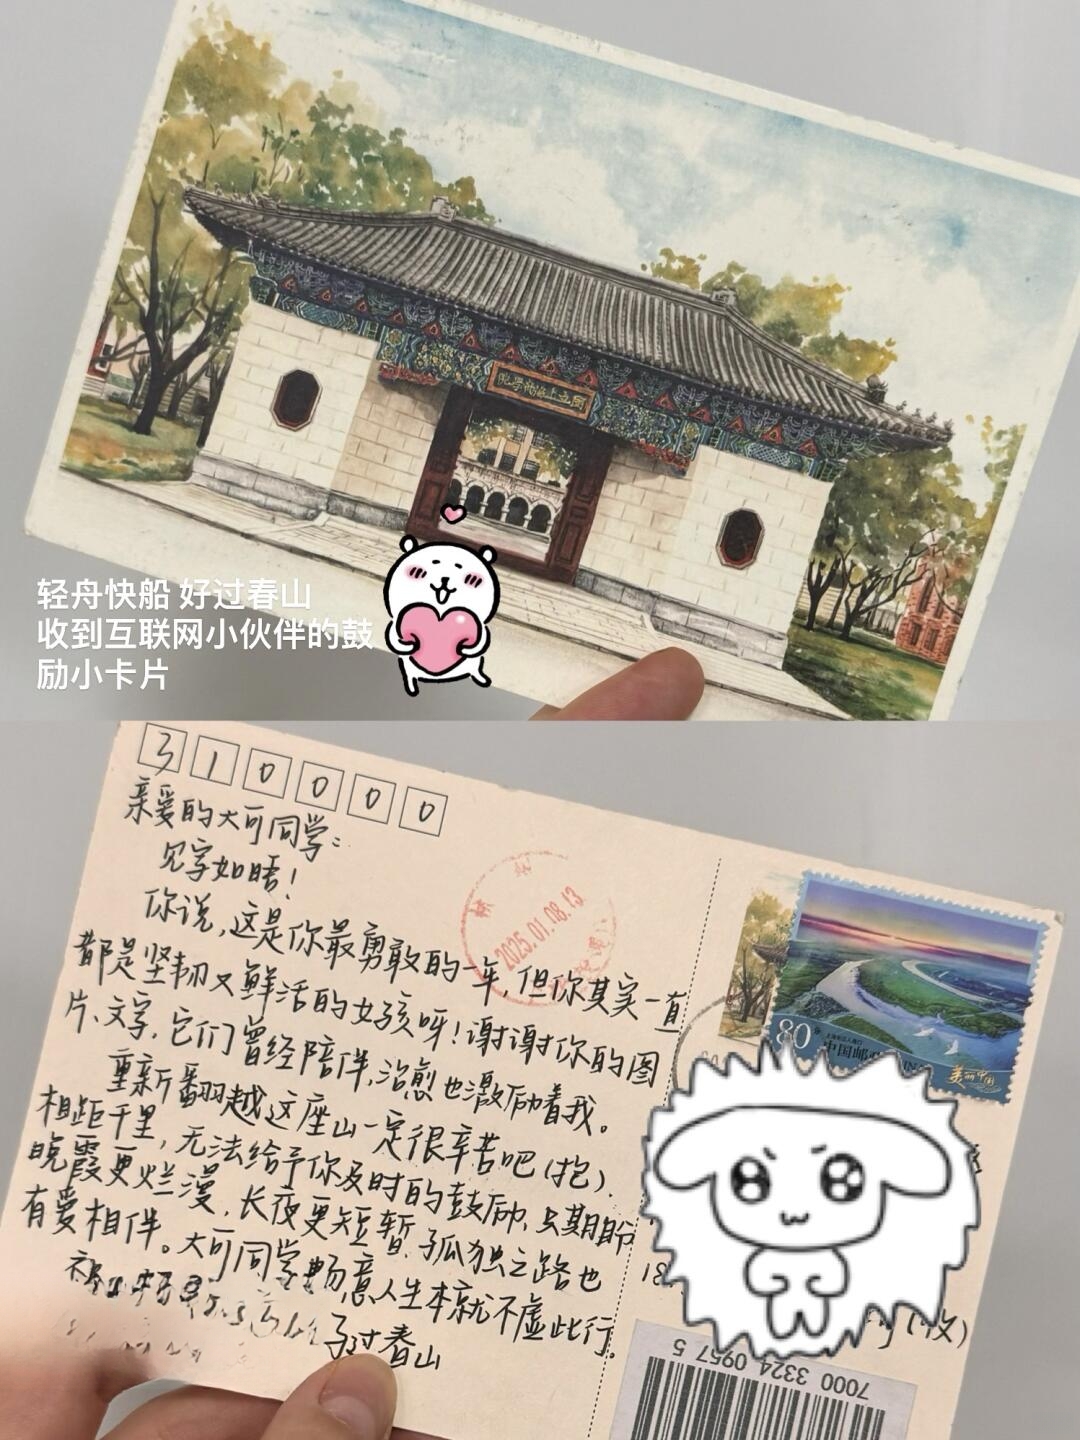 国立上海商学院
轻舟快船 好过春山
收到互联网小伙伴的鼓
励小卡片
310000
亲爱的大可同学:
见字如晤!
你说,这是你最勇敢的一年,但你其实一直
都是坚韧又鲜活的女孩呀!谢谢你的图
片、文字,它们曾经陪伴,治愈也激励着我。
重新翻越这座山一定很辛苦吧(抱).
相距千里,无法给予你及时的鼓励,只期盼
晚霞更烂漫,长夜更短暂,孤独之路也
有爱相伴。大可同学畅意人生本就不虚此行.
过春山
2025.01.08.13
80分
中国邮政
美丽中国
(收)
7000 3324 0957 5